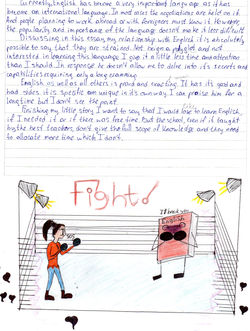 Currently, English has become a very important language as it has
become an international language. In most cases the negotiations are held on it
And people planning to work abroad or with foreigners must know it. However
the popularity and importance of the language doesn't make it less difficult.
Discussing in this essay my relationship with English it is absolutely
possible to say that, they are strained. Not being a polyglot and not
interested in learning this language, I give it a little less time and attention
than I should. In response he doesn't allow me to delve into it's secrets and
capabilities requiring only a long cramming.
English as well as all others is hard and reacting. It has it's good and
bad sides. it is specific and unique in its own way. I can praise him for a
long time but I don't see the point.
Finishing my little story I want to say that I would love to learn English,
if I needed it or if there was free time. But the school, even if it taught
by the best teachers, don't give the full scope of knowledge and they need
to allocate more time which I don't.
Fight!
VS
English